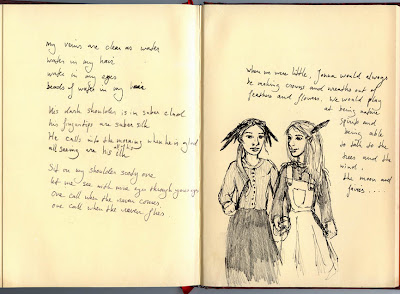 my veins are clear as water
water in my hair
water in my eyes
beads of water in my hair
His dark shoulder is in saber clad
his fingertips are saber silk
He calls into the morning when he is glad
all seeing are his
Sit on my shoulder sooty one
let me see with mine eyes through your eyes
one call when the raven comes
one call when the raven flies
When we were little, Jonna would always
be making crowns and wreaths out of
feathers and flowers. We would play
at being nature
spirits and
being able
to talk to the
trees and the
wind,
the moon and
fairies.....